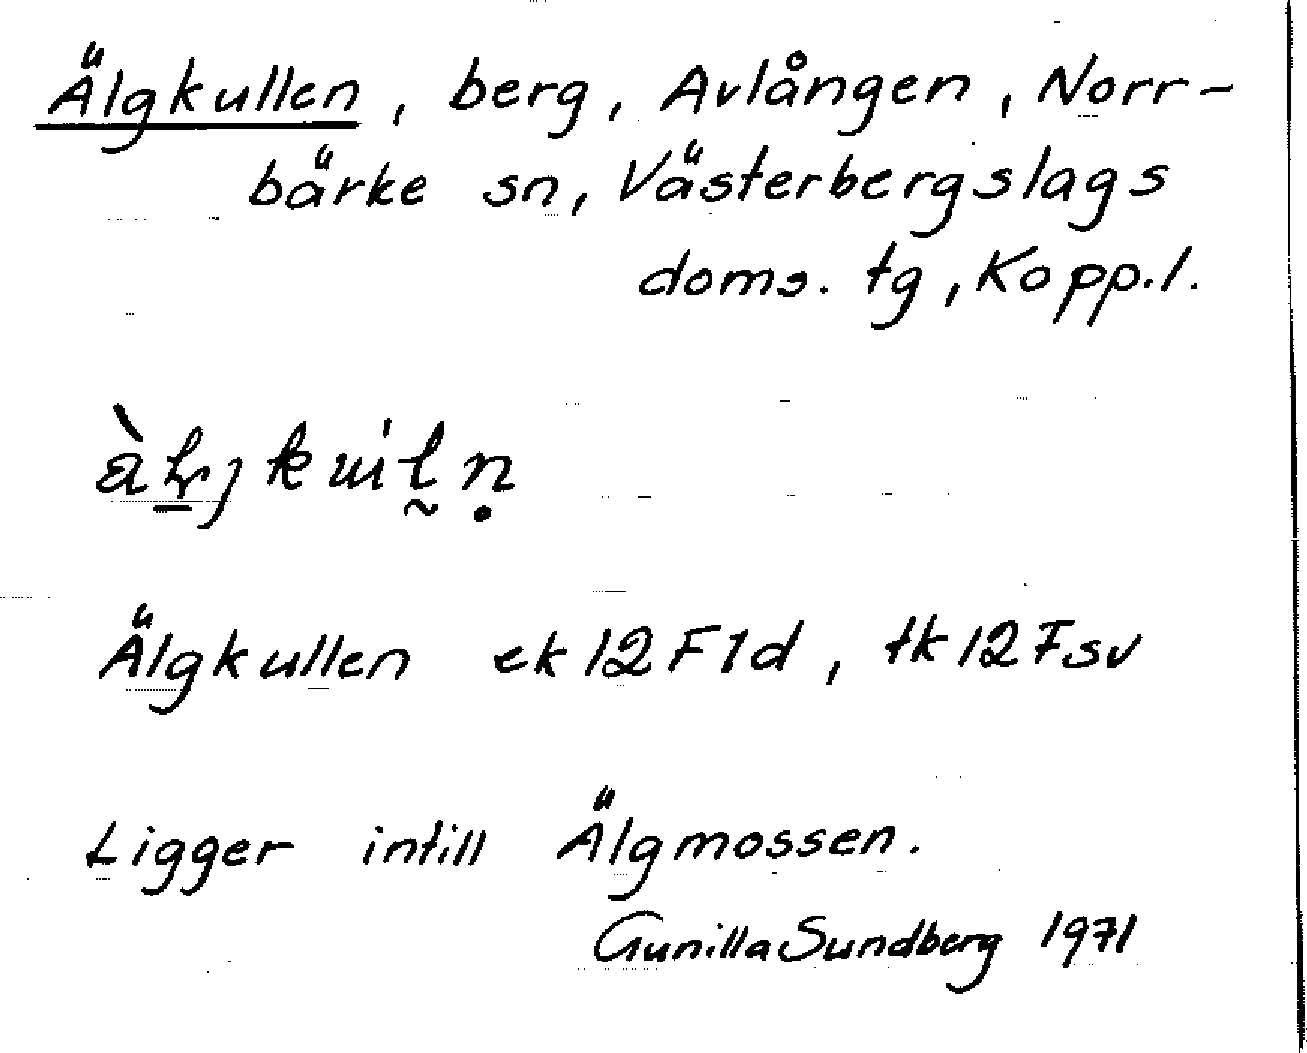 Älgkullen, berg, Avlången, Norr-
bärke sn, Västerbergslags
doms. tg, Kopp.l.
Älgkullen ek 12F1d, tk 12Fsv
Ligger intill Älgmossen.
Gunilla Sundberg 1971